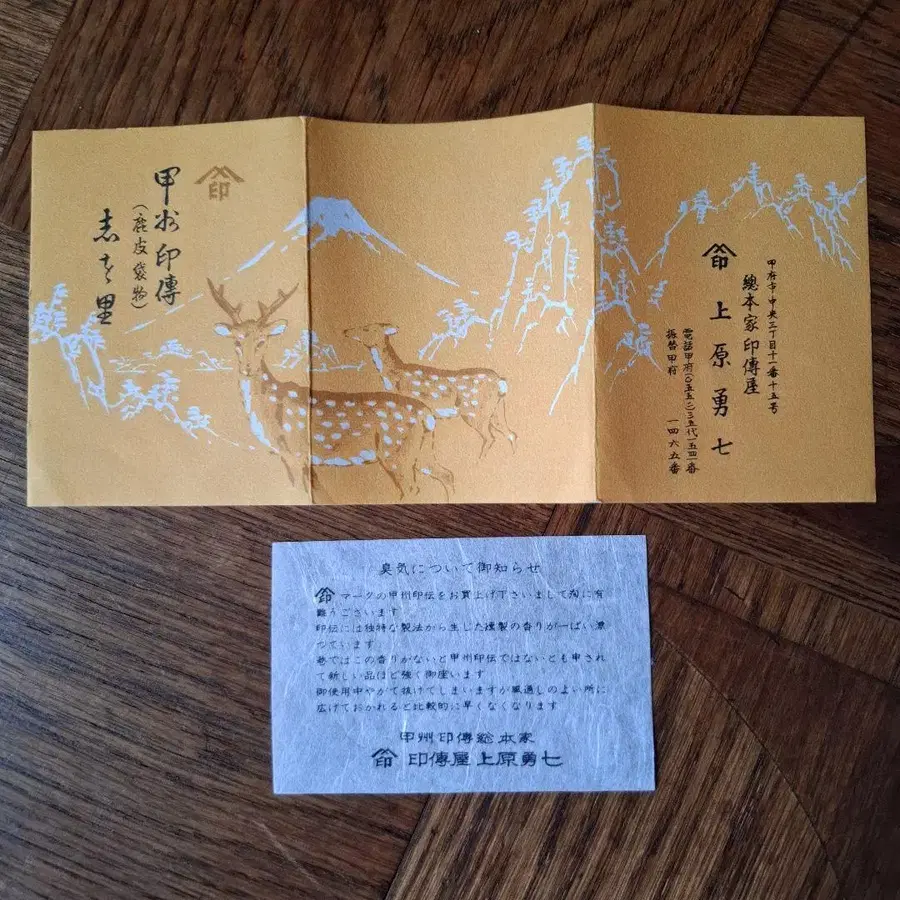 印
甲州印傳
(鹿皮袋物)
志を里
甲府市中央三丁目十一番十五号
總本家印傳屋
印 上原勇七
電話甲府(〇五五二)三五代一五四一番
振替甲府 一四六五番
臭気について御知らせ
印 マークの甲州印伝をお買上げ下さいまして洵に有
難うございます
印伝には独特な製法から生じた燻製の香りが一ぱい漂
つています
巷ではこの香りがないと甲州印伝ではないとも申され
て新しい品ほど強く御座います
御使用中やがて抜けてしまいますが風通しのよい所に
広げておかれると比較的に早くなくなります
甲州印傳総本家
印 印傳屋上原勇七